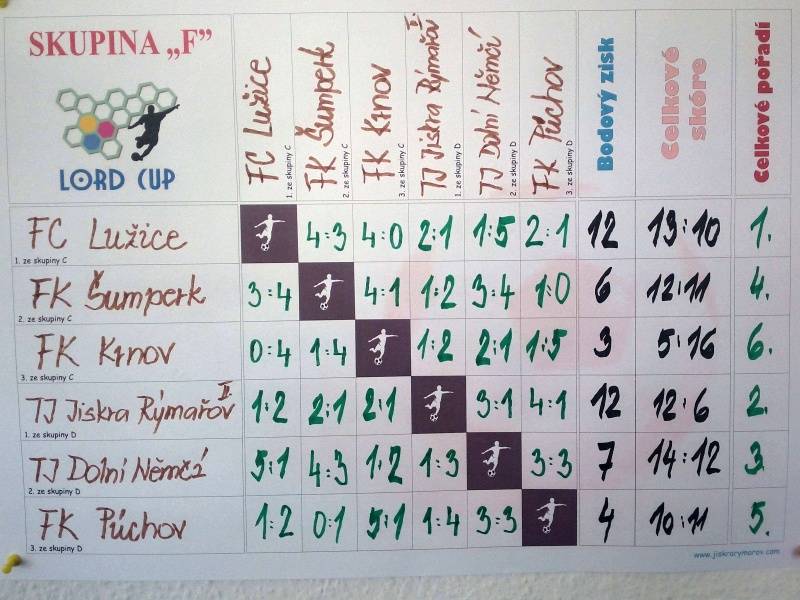 SKUPINA „F”
LORD CUP
FC Lužice
1. ze skupiny C
FK Šumperk
2. ze skupiny C
FK Krnov
3. ze skupiny C
TJ Jiskra Rýmařov II.
1. ze skupiny D
TJ Dolní Němčí
2. ze skupiny D
FK Púchov
3. ze skupiny D
Bodový zisk
Celkové skóre
Celkové pořadí
FC Lužice 4:3 4:0 2:1 1:5 2:1 12 13:10 1.
1. ze skupiny C
FK Šumperk 3:4 4:1 1:2 3:4 1:0 6 12:11 4.
2. ze skupiny C
FK Krnov 0:4 1:4 1:2 2:1 1:5 3 5:16 6.
3. ze skupiny C
TJ Jiskra Rýmařov II. 1:2 2:1 2:1 3:1 4:1 12 12:6 2.
1. ze skupiny D
TJ Dolní Němčí 5:1 4:3 1:2 1:3 3:3 7 14:12 3.
2. ze skupiny D
FK Púchov 1:2 0:1 5:1 1:4 3:3 4 10:11 5.
3. ze skupiny D
www.jiskrarymarov.com